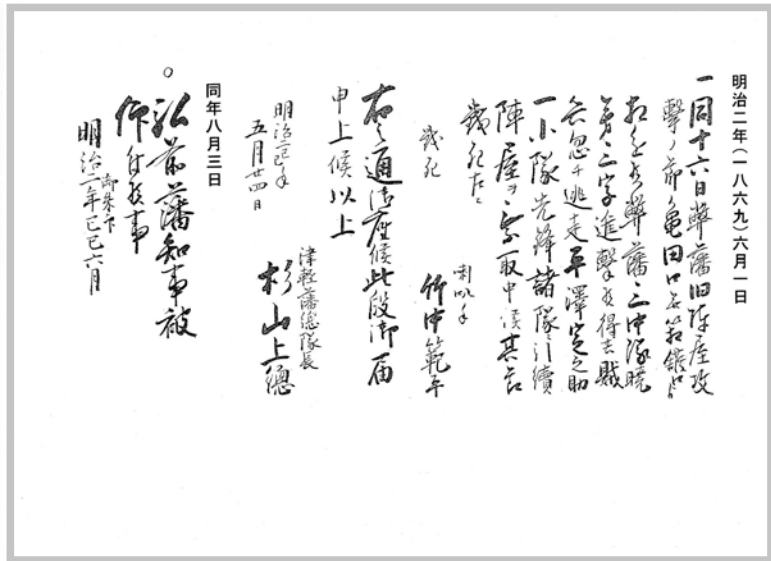 明治二年(一八六九)六月一日
一同十六日弊藩旧陣屋攻
撃ノ節亀田口
弊藩二中隊暁
第三字進撃候得者賊
忽チ逃走平澤定之助
一小隊先鋒諸隊引續
陣屋ヲ乗取申候其節
戦死左ニ
喇叭手
戦死 竹中範平
右之通御座候此段御届
申上候以上
明治二己年
五月廿四日
津軽藩總隊長
杉山上總
同年八月三日
○弘前藩知事被
仰付候事
御朱印
明治二年己巳六月